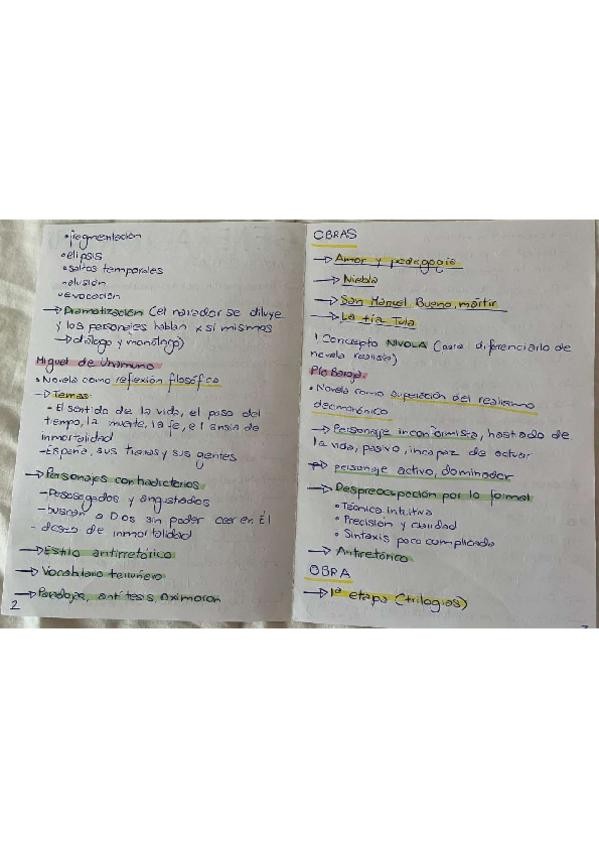 • fragmentación
• elipsis
• saltos temporales
• alusión
• evocación
→ Dramatización (el narrador se diluye
y los personajes hablan x sí mismos
→ diálogo y monólogo)
Miguel de Unamuno
• Novela como reflexión filosófica
→ Temas:
- El sentido de la vida, el paso del
tiempo, la muerte, la fe, el ansia de
inmortalidad
- España, sus tierras y sus gentes
→ Personajes contradictorios
- Desosegados y angustiados
- buscan a Dios sin poder creer en Él
- deseo de inmortalidad
→ Estilo antirretórico
→ Vocabulario terruñero
→ Paradoja, antítesis, oximoron
2
OBRAS
→ Amor y pedagogía
→ Niebla
→ San Manuel Bueno, mártir
→ La tía Tula
! Concepto NIVOLA (para diferenciarlo de
novela realista)
Pío Baroja
• Novela como superación del realismo
decimonónico
→ Personaje inconformista, hastiado de
la vida, pasivo, incapaz de actuar
→ personaje activo, dominador
→ Despreocupación por lo formal
• Técnica intuitiva
• Precisión y claridad
• Sintaxis poco complicada
→ Antiretórico
OBRA
→ 1ª etapa (trilogías)